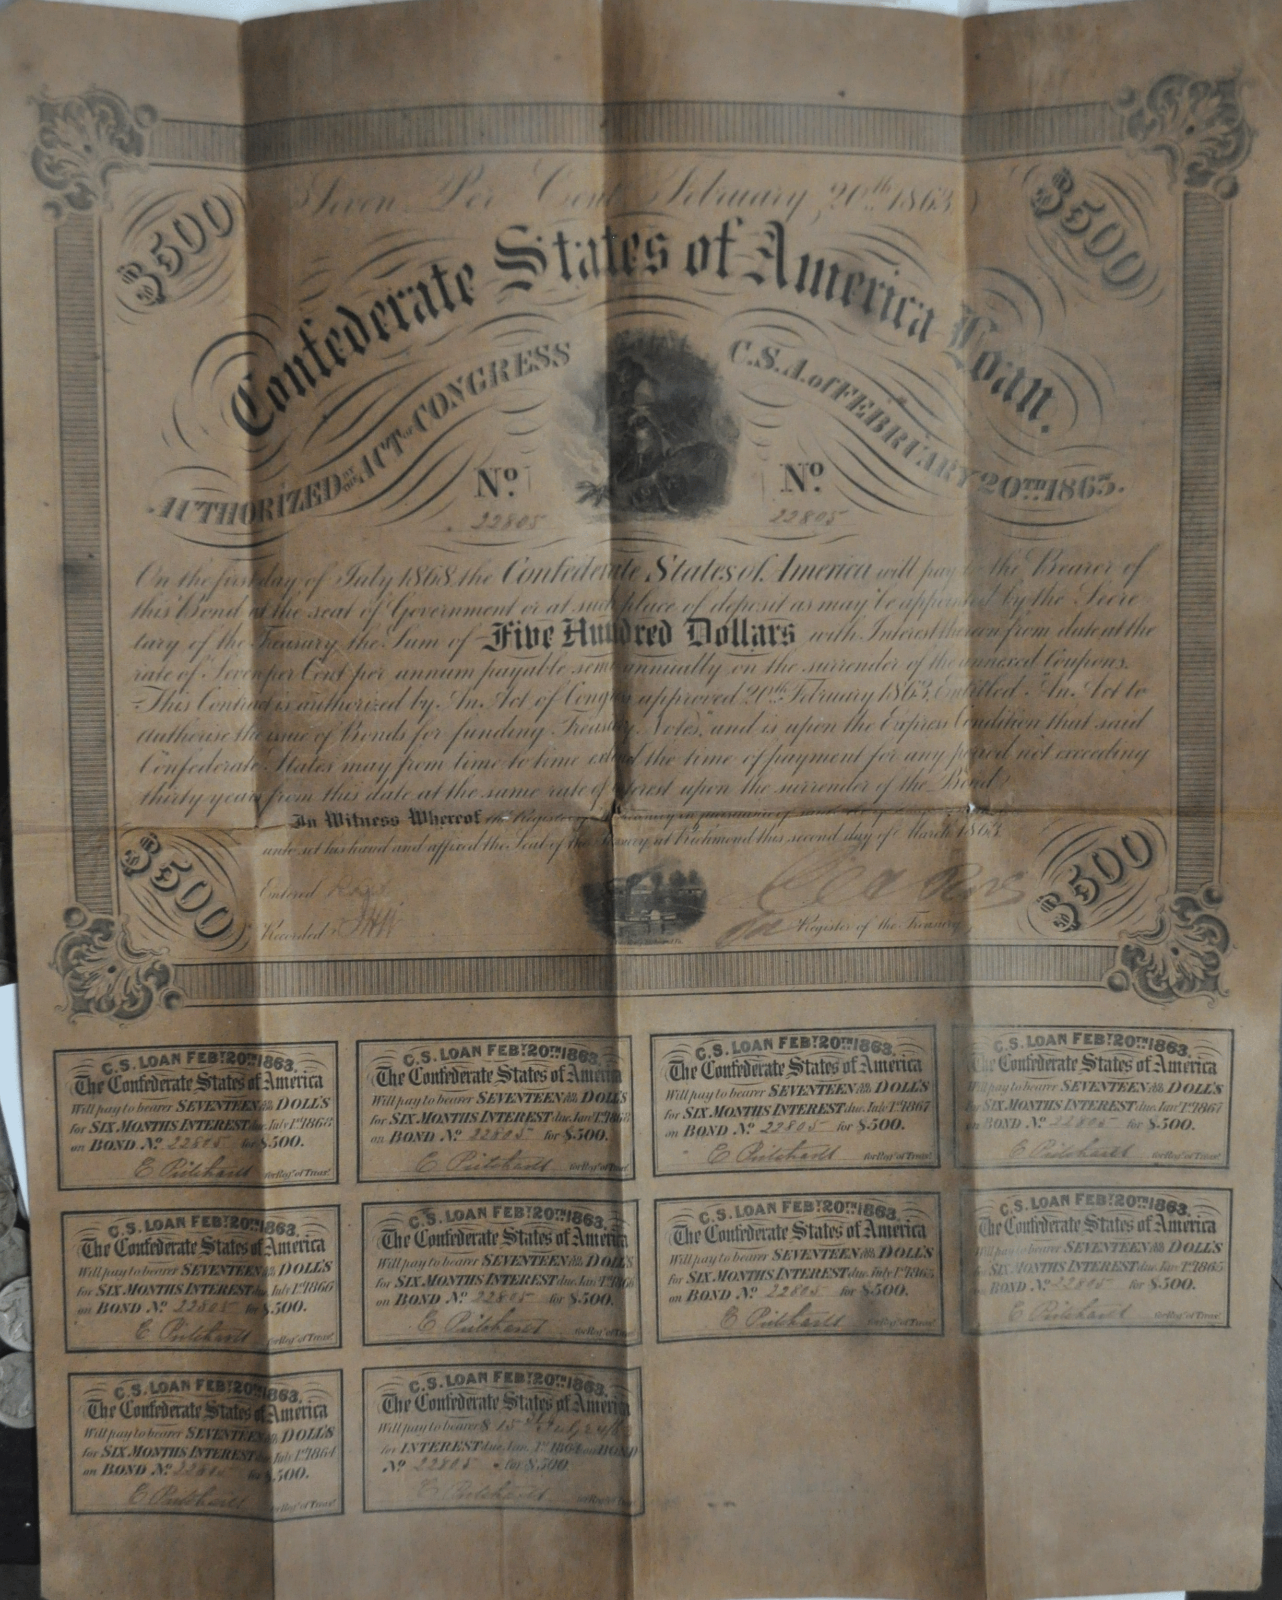 Seven Per Cent February 20th 1863
$500
$500
Confederate States of America Loan.
AUTHORIZED BY THE ACT OF CONGRESS
C.S.A. of FEBRUARY 20TH 1863.
No.
No.
22805
22805
On the first day of July 1868, the Confederate States of America will pay to the Bearer of
this Bond at the seat of Government or at such place of deposit as may be appointed by the Secre
tary of the Treasury, the Sum of Five Hundred Dollars with Interest thereon from date at the
rate of Seven per Cent per annum payable semi annually on the surrender of the annexed Coupons.
This Contract is authorized by An Act of Congress approved 20th February 1863, Entitled "An Act to
authorise the issue of Bonds for funding Treasury Notes," and is upon the Express Condition that said
Confederate States may from time to time extend the time of payment for any period not exceeding
thirty years from this date at the same rate of interest upon the surrender of the Bond
In Witness Whereof the Register of the Treasury in pursuance of said
unto set his hand and affixed the Seal of the Treasury at Richmond this second day of March 1863
$500
$500
Entered
Recorded
Register of the Treasury
C.S. LOAN FEBY. 20TH 1863.
The Confederate States of America
Will pay to bearer SEVENTEEN DOLL'S
for SIX MONTHS INTEREST due July 1st 1868
on BOND No. 22805 for $500.
E Pritchard for Regr. of Treasr.
C.S. LOAN FEBY. 20TH 1863.
The Confederate States of America
Will pay to bearer SEVENTEEN DOLL'S
for SIX MONTHS INTEREST due Jany. 1st 1868
on BOND No. 22805 for $500.
E Pritchard for Regr. of Treasr.
C.S. LOAN FEBY. 20TH 1863.
The Confederate States of America
Will pay to bearer SEVENTEEN DOLL'S
for SIX MONTHS INTEREST due July 1st 1867
on BOND No. 22805 for $500.
E Pritchard for Regr. of Treasr.
C.S. LOAN FEBY. 20TH 1863.
The Confederate States of America
Will pay to bearer SEVENTEEN DOLL'S
for SIX MONTHS INTEREST due Jany. 1st 1867
on BOND No. 22805 for $500.
E Pritchard for Regr. of Treasr.
C.S. LOAN FEBY. 20TH 1863.
The Confederate States of America
Will pay to bearer SEVENTEEN DOLL'S
for SIX MONTHS INTEREST due July 1st 1866
on BOND No. 22805 for $500.
E Pritchard for Regr. of Treasr.
C.S. LOAN FEBY. 20TH 1863.
The Confederate States of America
Will pay to bearer SEVENTEEN DOLL'S
for SIX MONTHS INTEREST due Jany. 1st 1866
on BOND No. 22805 for $500.
E Pritchard for Regr. of Treasr.
C.S. LOAN FEBY. 20TH 1863.
The Confederate States of America
Will pay to bearer SEVENTEEN DOLL'S
for SIX MONTHS INTEREST due July 1st 1865
on BOND No. 22805 for $500.
E Pritchard for Regr. of Treasr.
C.S. LOAN FEBY. 20TH 1863.
The Confederate States of America
Will pay to bearer SEVENTEEN DOLL'S
for SIX MONTHS INTEREST due Jany. 1st 1865
on BOND No. 22805 for $500.
E Pritchard for Regr. of Treasr.
C.S. LOAN FEBY. 20TH 1863.
The Confederate States of America
Will pay to bearer SEVENTEEN DOLL'S
for SIX MONTHS INTEREST due July 1st 1864
on BOND No. 22805 for $500.
E Pritchard for Regr. of Treasr.
C.S. LOAN FEBY. 20TH 1863.
The Confederate States of America
Will pay to bearer $
for INTEREST due Jany. 1st 1864 on BOND
No. 22805 for $500.
E Pritchard for Regr. of Treasr.